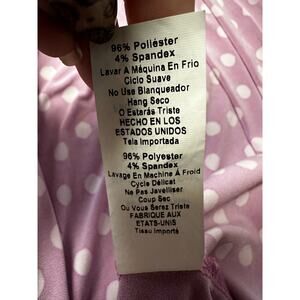 96% Poliéster
4% Spandex
Lavar A Máquina En Frio
Ciclo Suave
No Use Blanqueador
Hang Seco
O Estarás Triste
HECHO EN LOS
ESTADOS UNIDOS
Tela Importada
96% Polyester
4% Spandex
Lavage En Machine Á Froid
Cycle Délicat
Ne Pas Javelliser
Coup Sec
Ou Vous Serez Triste
FABRIQUE AUX
ETATS-UNIS
Tissu Importé